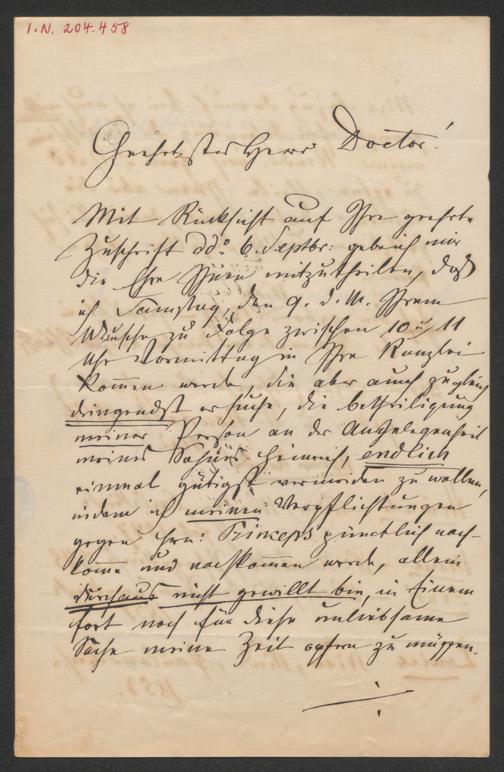 I.N. 204.458
Geehrtester Herr Doctor!
Mit Rücksicht auf Ihre geehrte
Zuschrift ddo 6. Septbr: gebe ich mir
die Ehre Ihnen mitzutheilen, daß
ich Samstag, den 9. d. M. Ihrem
Wunsche zu Folge zwischen 10 u 11
Uhr Vormittag in Ihre Kanzlei
kommen werde, Sie aber auch zugleich
dringendst ersuche, die Betheiligung
meiner Person an der Angelegenheit
meines Sohnes Heinrich, endlich
einmal gütigst vermeiden zu wollen,
indem ich meinen Verpflichtungen
gegen Hrn: Princeps pünctlich nach-
komme und nachkommen werde, allein
durchaus nicht gewillt bin, in Einem
fort noch für diese unliebsame
Sache meine Zeit opfern zu müssen.